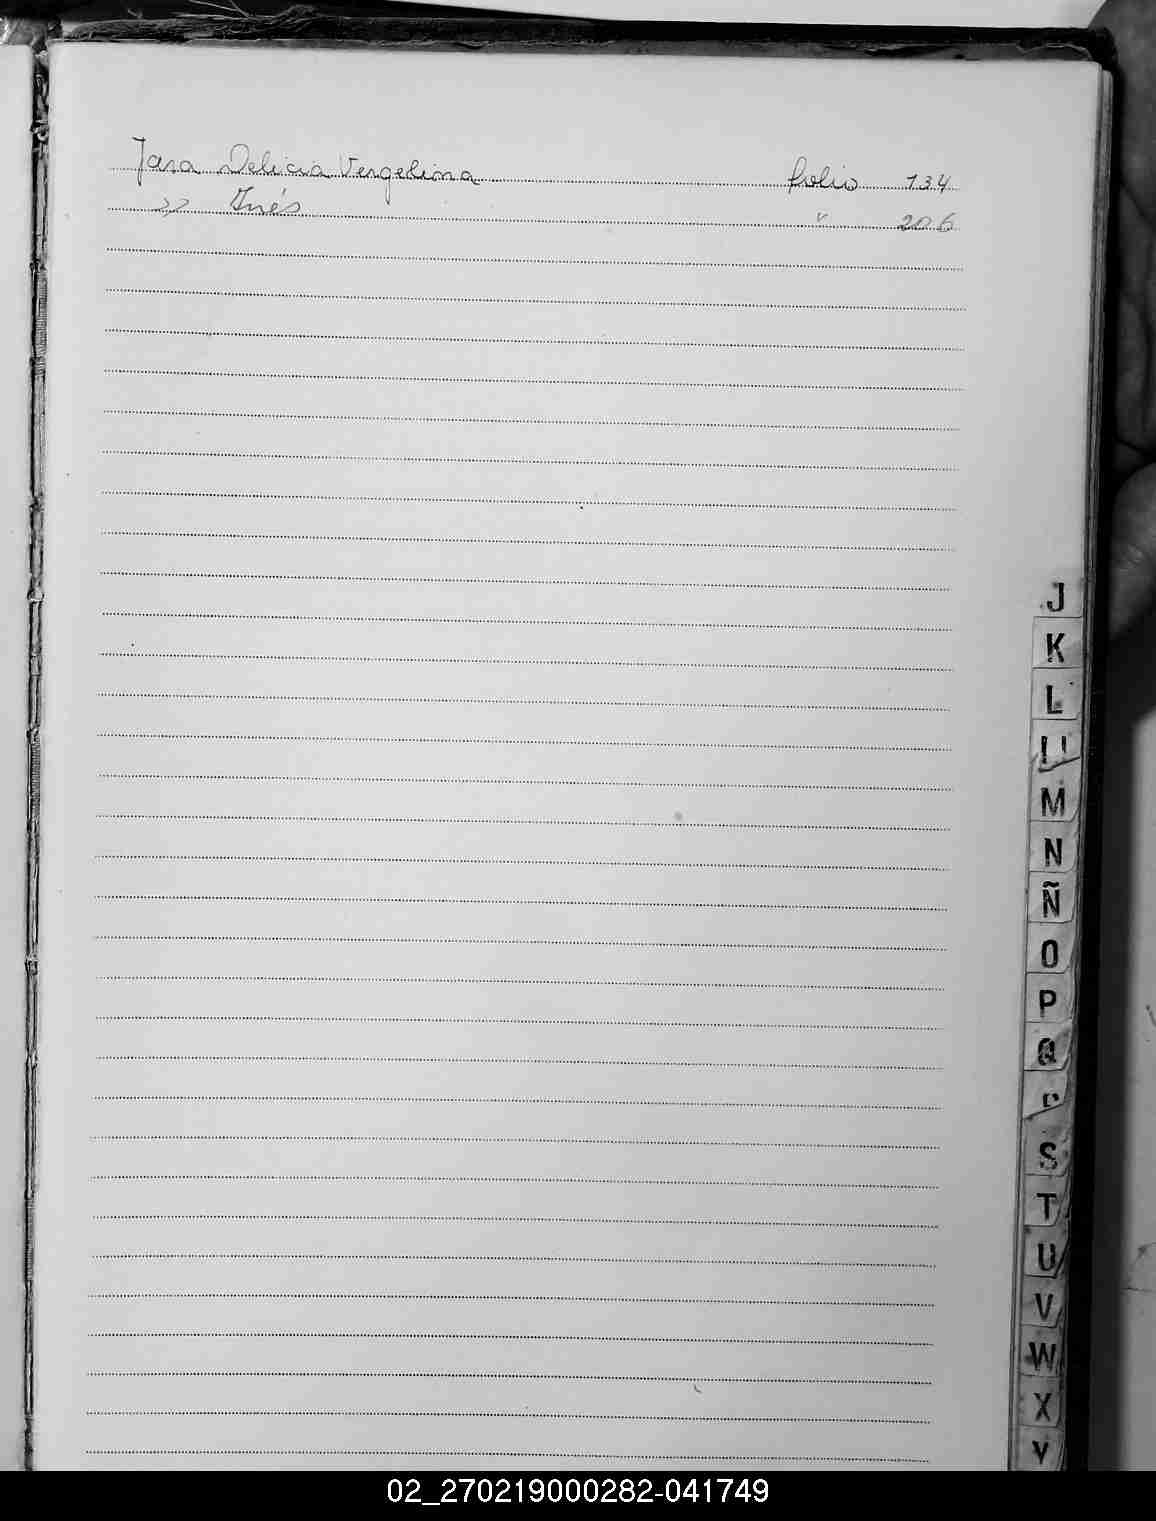 Jara Delicia Vergelina folio 134
" Inés " 206
J
K
L
M
N
Ñ
O
P
Q
S
T
U
V
W
X
02_270219000282-041749